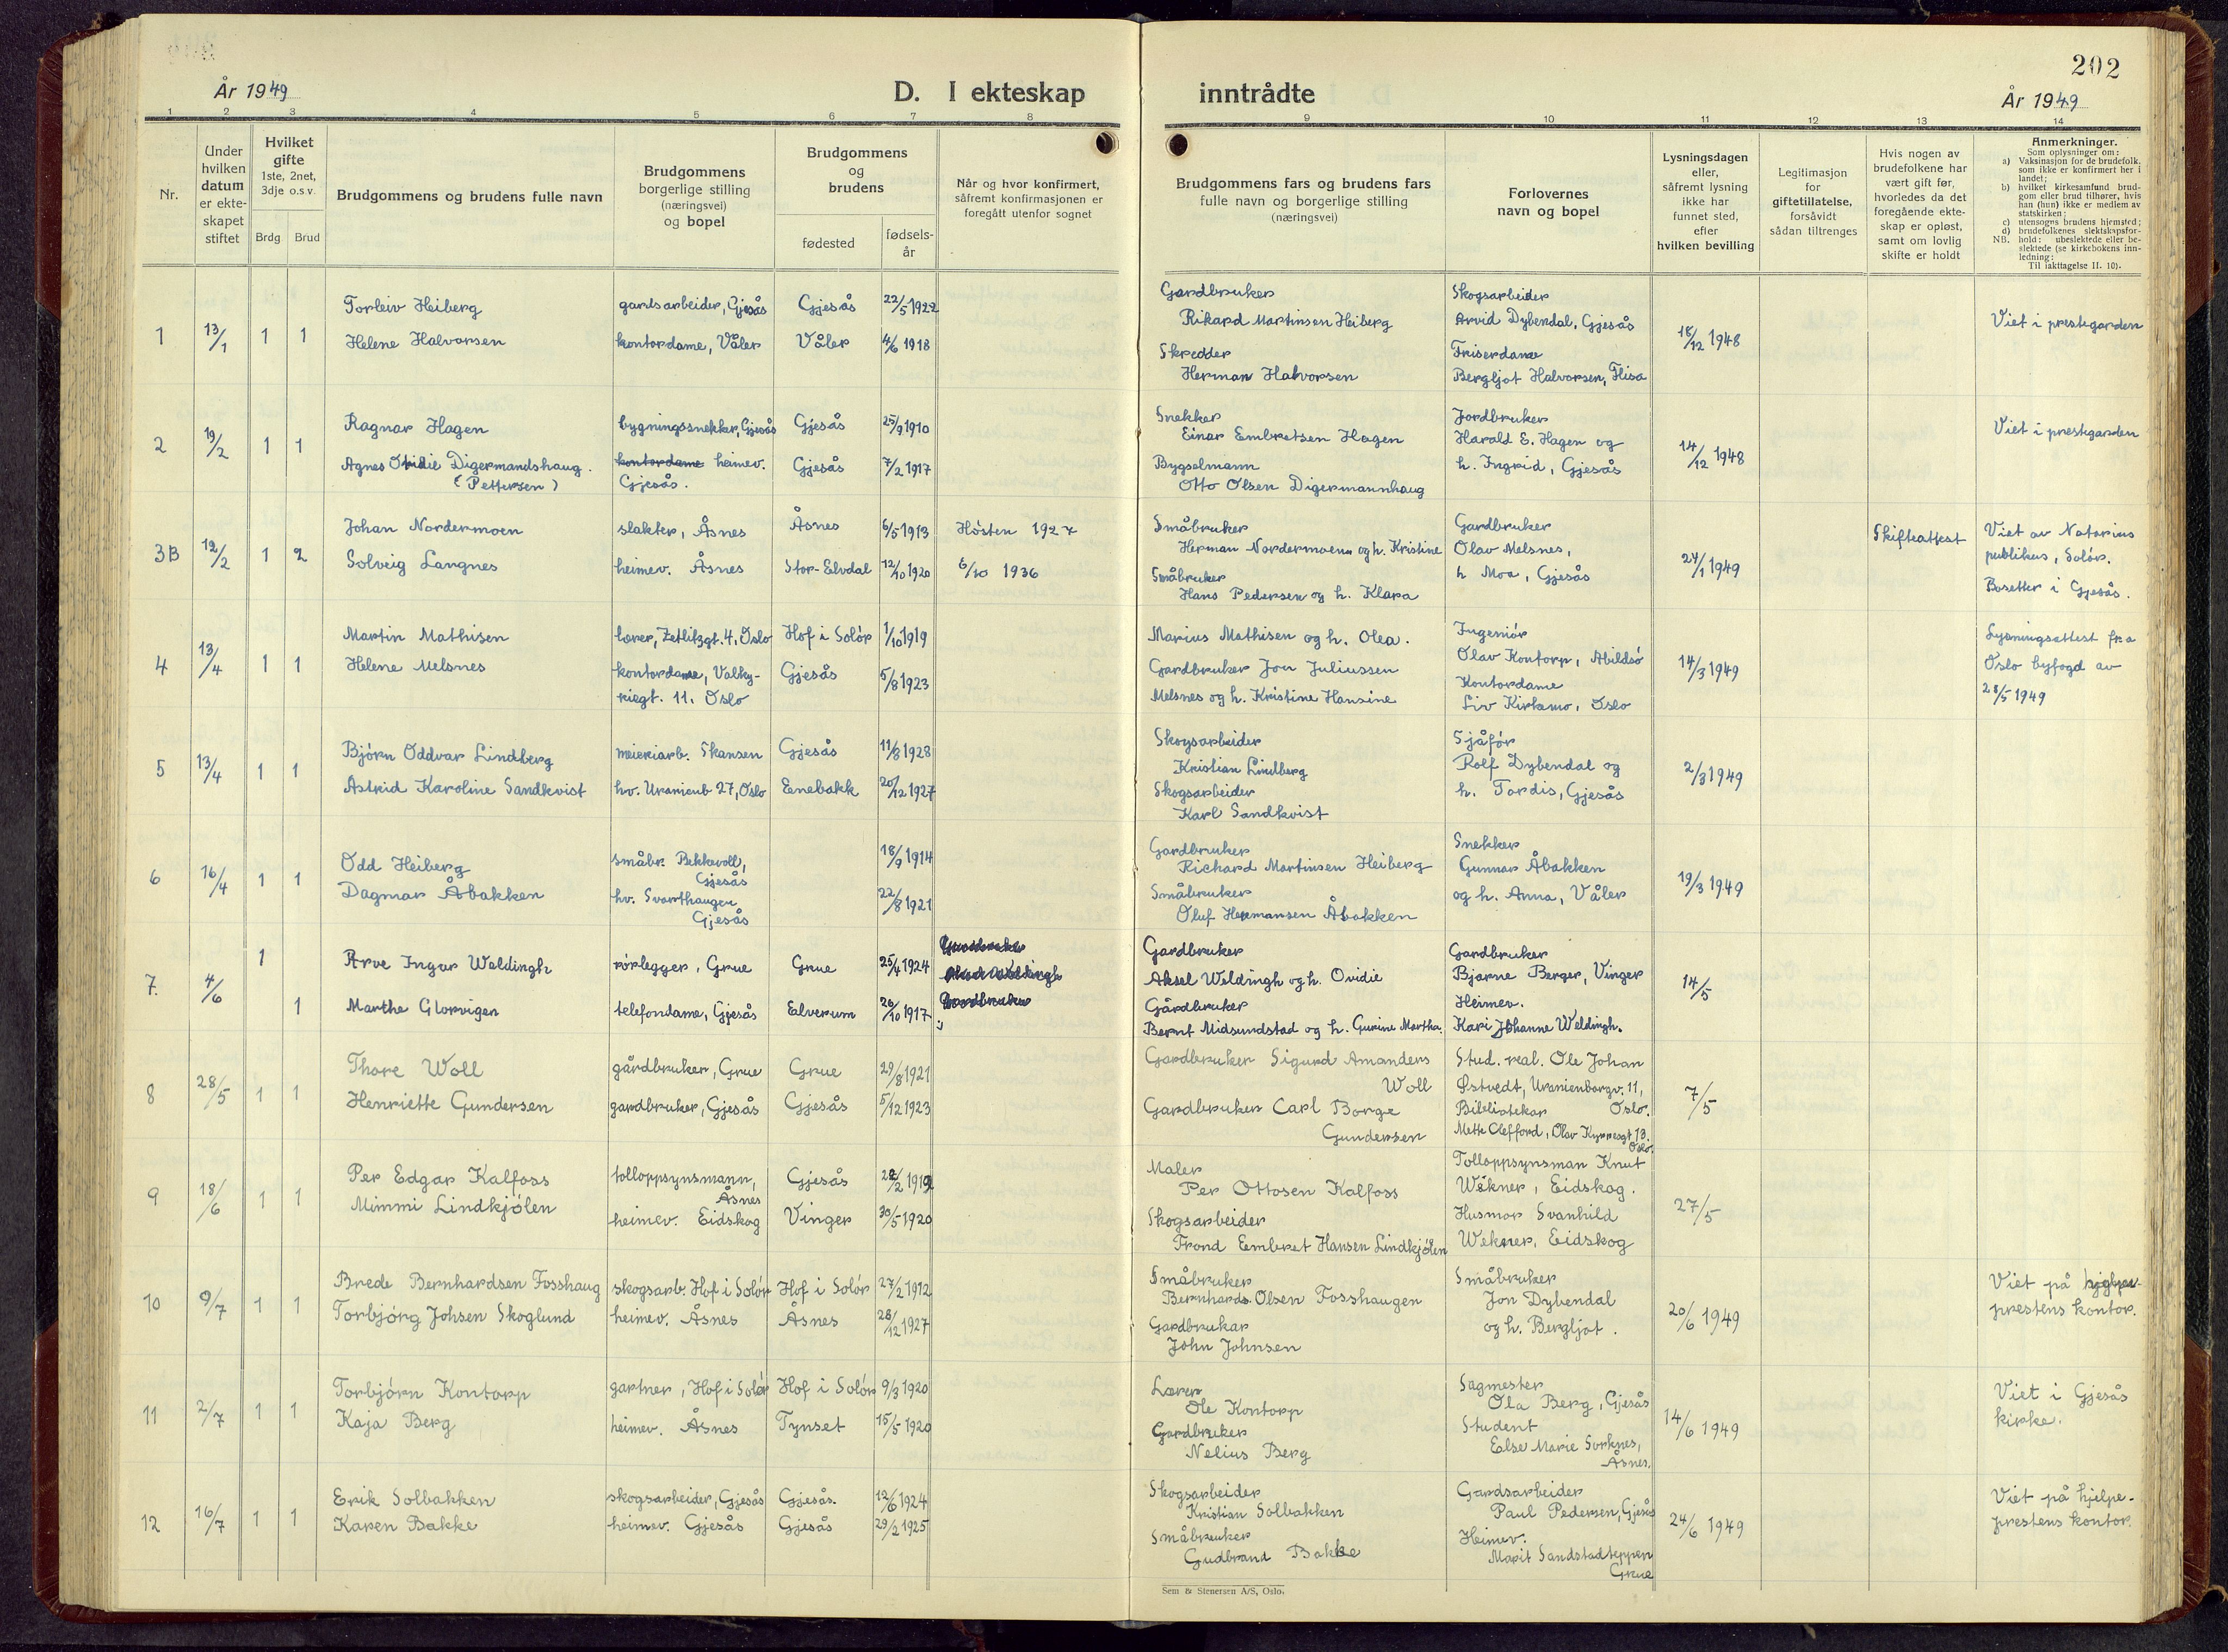 202
År 1949
D. I ekteskap inntrådte
År 1949
1 2 3 4 5 6 7 8 9 10 11 12 13 14
Nr.
Under hvilken datum er ekte-skapet stiftet
Hvilket gifte 1ste, 2net, 3dje o.s.v.
Brdg Brud
Brudgommens og brudens fulle navn
Brudgommens borgerlige stilling (næringsvei) og bopel
Brudgommens og brudens
fødested
fødsels-år
Når og hvor konfirmert, såfremt konfirmasjonen er foregått utenfor sognet
Brudgommens fars og brudens fars fulle navn og borgerlige stilling (næringsvei)
Forlovernes navn og bopel
Lysningsdagen eller, såfremt lysning ikke har funnet sted, efter hvilken bevilling
Legitimasjon for giftetillatelse, forsåvidt sådan tiltrenges
Hvis nogen av brudefolkene har vært gift før, hvorledes da det foregående ekte-skap er opløst, samt om lovlig skifte er holdt
Anmerkninger.
Som oplysninger om:
a) Vaksinasjon for de brudefolk, som ikke er konfirmert her i landet;
b) hvilket kirkesamfund brud-gom eller brud tilhører, hvis han (hun) ikke er medlem av statskirken;
c) utensogns brudens hjemsted;
d) brudefolkenes slektskapsfor-hold: ubeslektede eller be-slektede (se kirkebokens inn-ledning:
NB. Til iakttagelse II. 10).
1 13/1 1 1
Torleiv Heiberg gardsarbeider, Gjesås Gjesås 22/5 1922
Helene Halvorsen kontordame, Våler Våler 4/6 1918
Gardbruker
Rikard Martinsen Heiberg
Skredder
Herman Halvorsen
Skogsarbeider
Arvid Dybendal, Gjesås
Friserdame
Bergljot Halvorsen, Flisa
18/12 1948
Viet i prestegarden
2 19/2 1 1
Ragnar Hagen bygningssnekker, Gjesås Gjesås 25/9 1910
Agnes Otidie Digermandshaug. kontordame heimev. Gjesås 7/2 1917
(Pettersen) Gjesås.
Snekker
Einar Embretsen Hagen
Bygselmann
Otto Olsen Digermannhaug
Jordbruker
Harald E. Hagen og
h. Ingrid, Gjesås
14/12 1948
Viet i prestegarden
3B 12/2 1 2
Johan Nordermoen slakter, Åsnes Åsnes 6/5 1913 Hösten 1927
Solveig Langnes heimev. Åsnes Stor-Elvdal 12/10 1920 6/10 1936
Småbruker
Herman Nordermoen og h. Kristine
Småbruker
Hans Pedersen og h. Klara
Gardbruker
Olav Melsnes,
h Moa, Gjesås
24/1 1949
Skifteattest
Viet av Notarius
publikus, Solör.
Bosetter i Gjesås.
4 13/4 1 1
Martin Mathisen lærer, Zetlitzgt. 4, Oslo Hof i Solör 1/10 1919
Helene Melsnes kontordame, Valky- Gjesås 5/8 1923
riegt. 11. Oslo
Marius Mathisen og h. Olea.
Gardbruker Jon Juliussen
Melsnes og h. Kristine Hansine
Ingeniör
Olav Kontorp, Abildsö
Kontordame
Liv Kirkemo, Oslo
14/3 1949
Lysningsattest fra
Oslo byfogd av
28/5 1949
5 13/4 1 1
Björn Oddvar Lindberg meieriarb. Skansen Gjesås 11/8 1928
Astrid Karoline Sandkvist hv. Uranienb 27, Oslo Enebakk 20/12 1927
Skogsarbeider
Kristian Lindberg
Skogsarbeider
Karl Sandkvist
Sjåför
Rolf Dybendal og
h. Tordis, Gjesås
2/3 1949
6 16/4 1 1
Odd Heiberg småbr. Bekkevoll, 18/9 1914
Gjesås
Dagmar Åbakken hv. Svarthaugen 22/8 1921
Gjesås
Gardbruker
Richard Martinsen Heiberg
Småbruker
Oluf Hermansen Åbakken
Snekker
Gunnar Åbakken
og h. Anna, Våler
19/3 1949
7. 4/6 1 1
Arve Ingvar Weldingh rörlegger, Grue Grue 25/4 1924
Marthe Glorvigen telefondame, Gjesås Elverum 26/10 1917
Gardbruker
Aksel Weldingh og h. Ovidie
Gårdbruker
Bernt Midsundstad og h. Gurine Martha.
Gardbruker
Bjarne Berger, Vinger
Heimev.
Kari Johanne Weldingh.
14/5
8 28/5 1 1
Thore Woll gårdbruker, Grue Grue 29/8 1921
Henriette Gundersen gardbruker, Gjesås Gjesås 5/12 1923
Gardbruker Sigurd Amanders
Woll
Gardbruker Carl Borge
Gundersen
Stud. real. Ole Johan
Østvedt, Uranienborgv. 11,
Bibliotekar Oslo.
Mette Clefford, Olav Kyrresgt 13.
Oslo.
7/5
9 18/6 1 1
Per Edgar Kalfoss tolloppsynsmann, Gjesås 22/2 1912
Åsnes
Mimmi Lindkjölen heimev. Eidskog Vinger 30/5 1920
Maler
Per Ottosen Kalfoss
Skogsarbeider
Trond Embret Hansen Lindkjölen
Tolloppsynsman Knut
Wekner, Eidskog.
Husmor Svanhild
Wekner, Eidskog
27/5
10 9/7 1 1
Brede Bernhardsen Fosshaug skogsarb. Hof i Solör Hof i Solör 27/2 1912
Torbjörg Johsen Skoglund heimev. Åsnes Åsnes 28/12 1927
Småbruker
Bernhards Olsen Fosshaugen
Gardbrukar
John Johnsen
Småbruker
Jon Dybendal
og h. Bergljot.
20/6 1949
Viet på hjelpe-
prestens kontor.
11 2/7 1 1
Torbjörn Kontorp gartner, Hof i Solör Hof i Solör 9/3 1920
Kaja Berg heimev. Åsnes Tynset 15/5 1920
Lærer
Ole Kontorp
Gardbruker
Nelius Berg
Sagmester
Ola Berg, Gjesås
Student
Else Marie Sorknes,
Åsnes.
14/6 1949
Viet i Gjesås
kirke.
12 16/7 1 1
Erik Solbakken skogsarbeider, Gjesås Gjesås. 12/6 1924
Karen Bakke heimev. Gjesås Gjesås 29/2 1925
Skogsarbeider
Kristian Solbakken
Småbruker
Gudbrand Bakke
Gardsarbeider
Paul Pedersen, Gjesås
Heimev.
Marit Sandstadteppen
Grue
24/6 1949
Viet på hjelpe-
prestens kontor.
Sem & Stenersen A/S, Oslo.